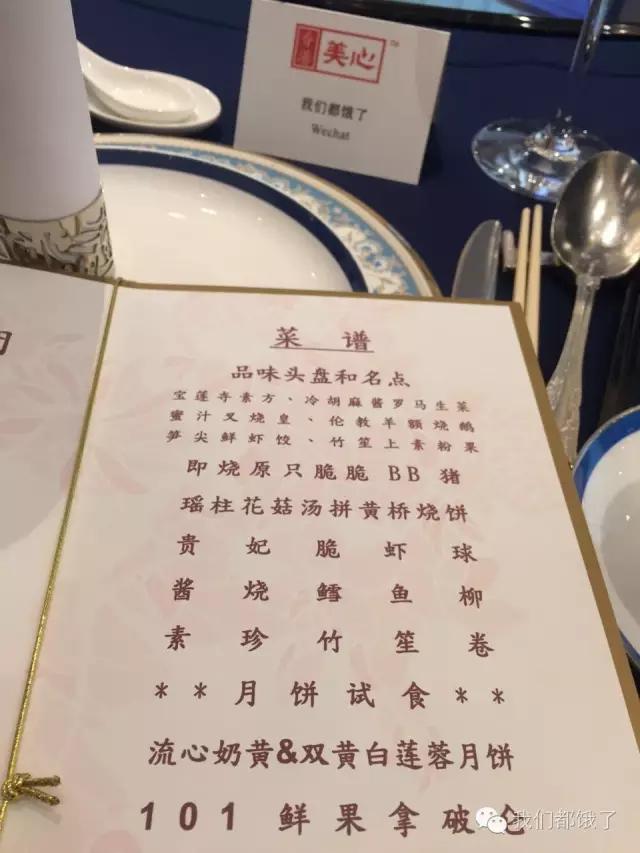 香港
美心
TM
我们都饿了
Wechat
菜 谱
品味头盘和名点
宝莲寺素方、冷胡麻酱罗马生菜
蜜汁叉烧皇、伦教羊额烧鹅
笋尖鲜虾饺、竹笙上素粉果
即烧原只脆脆 BB 猪
瑶柱花菇汤拼黄桥烧饼
贵妃脆虾球
酱烧鳕鱼柳
素珍竹笙卷
**月饼试食**
流心奶黄&双黄白莲蓉月饼
101 鲜果拿破仑
我们都饿了